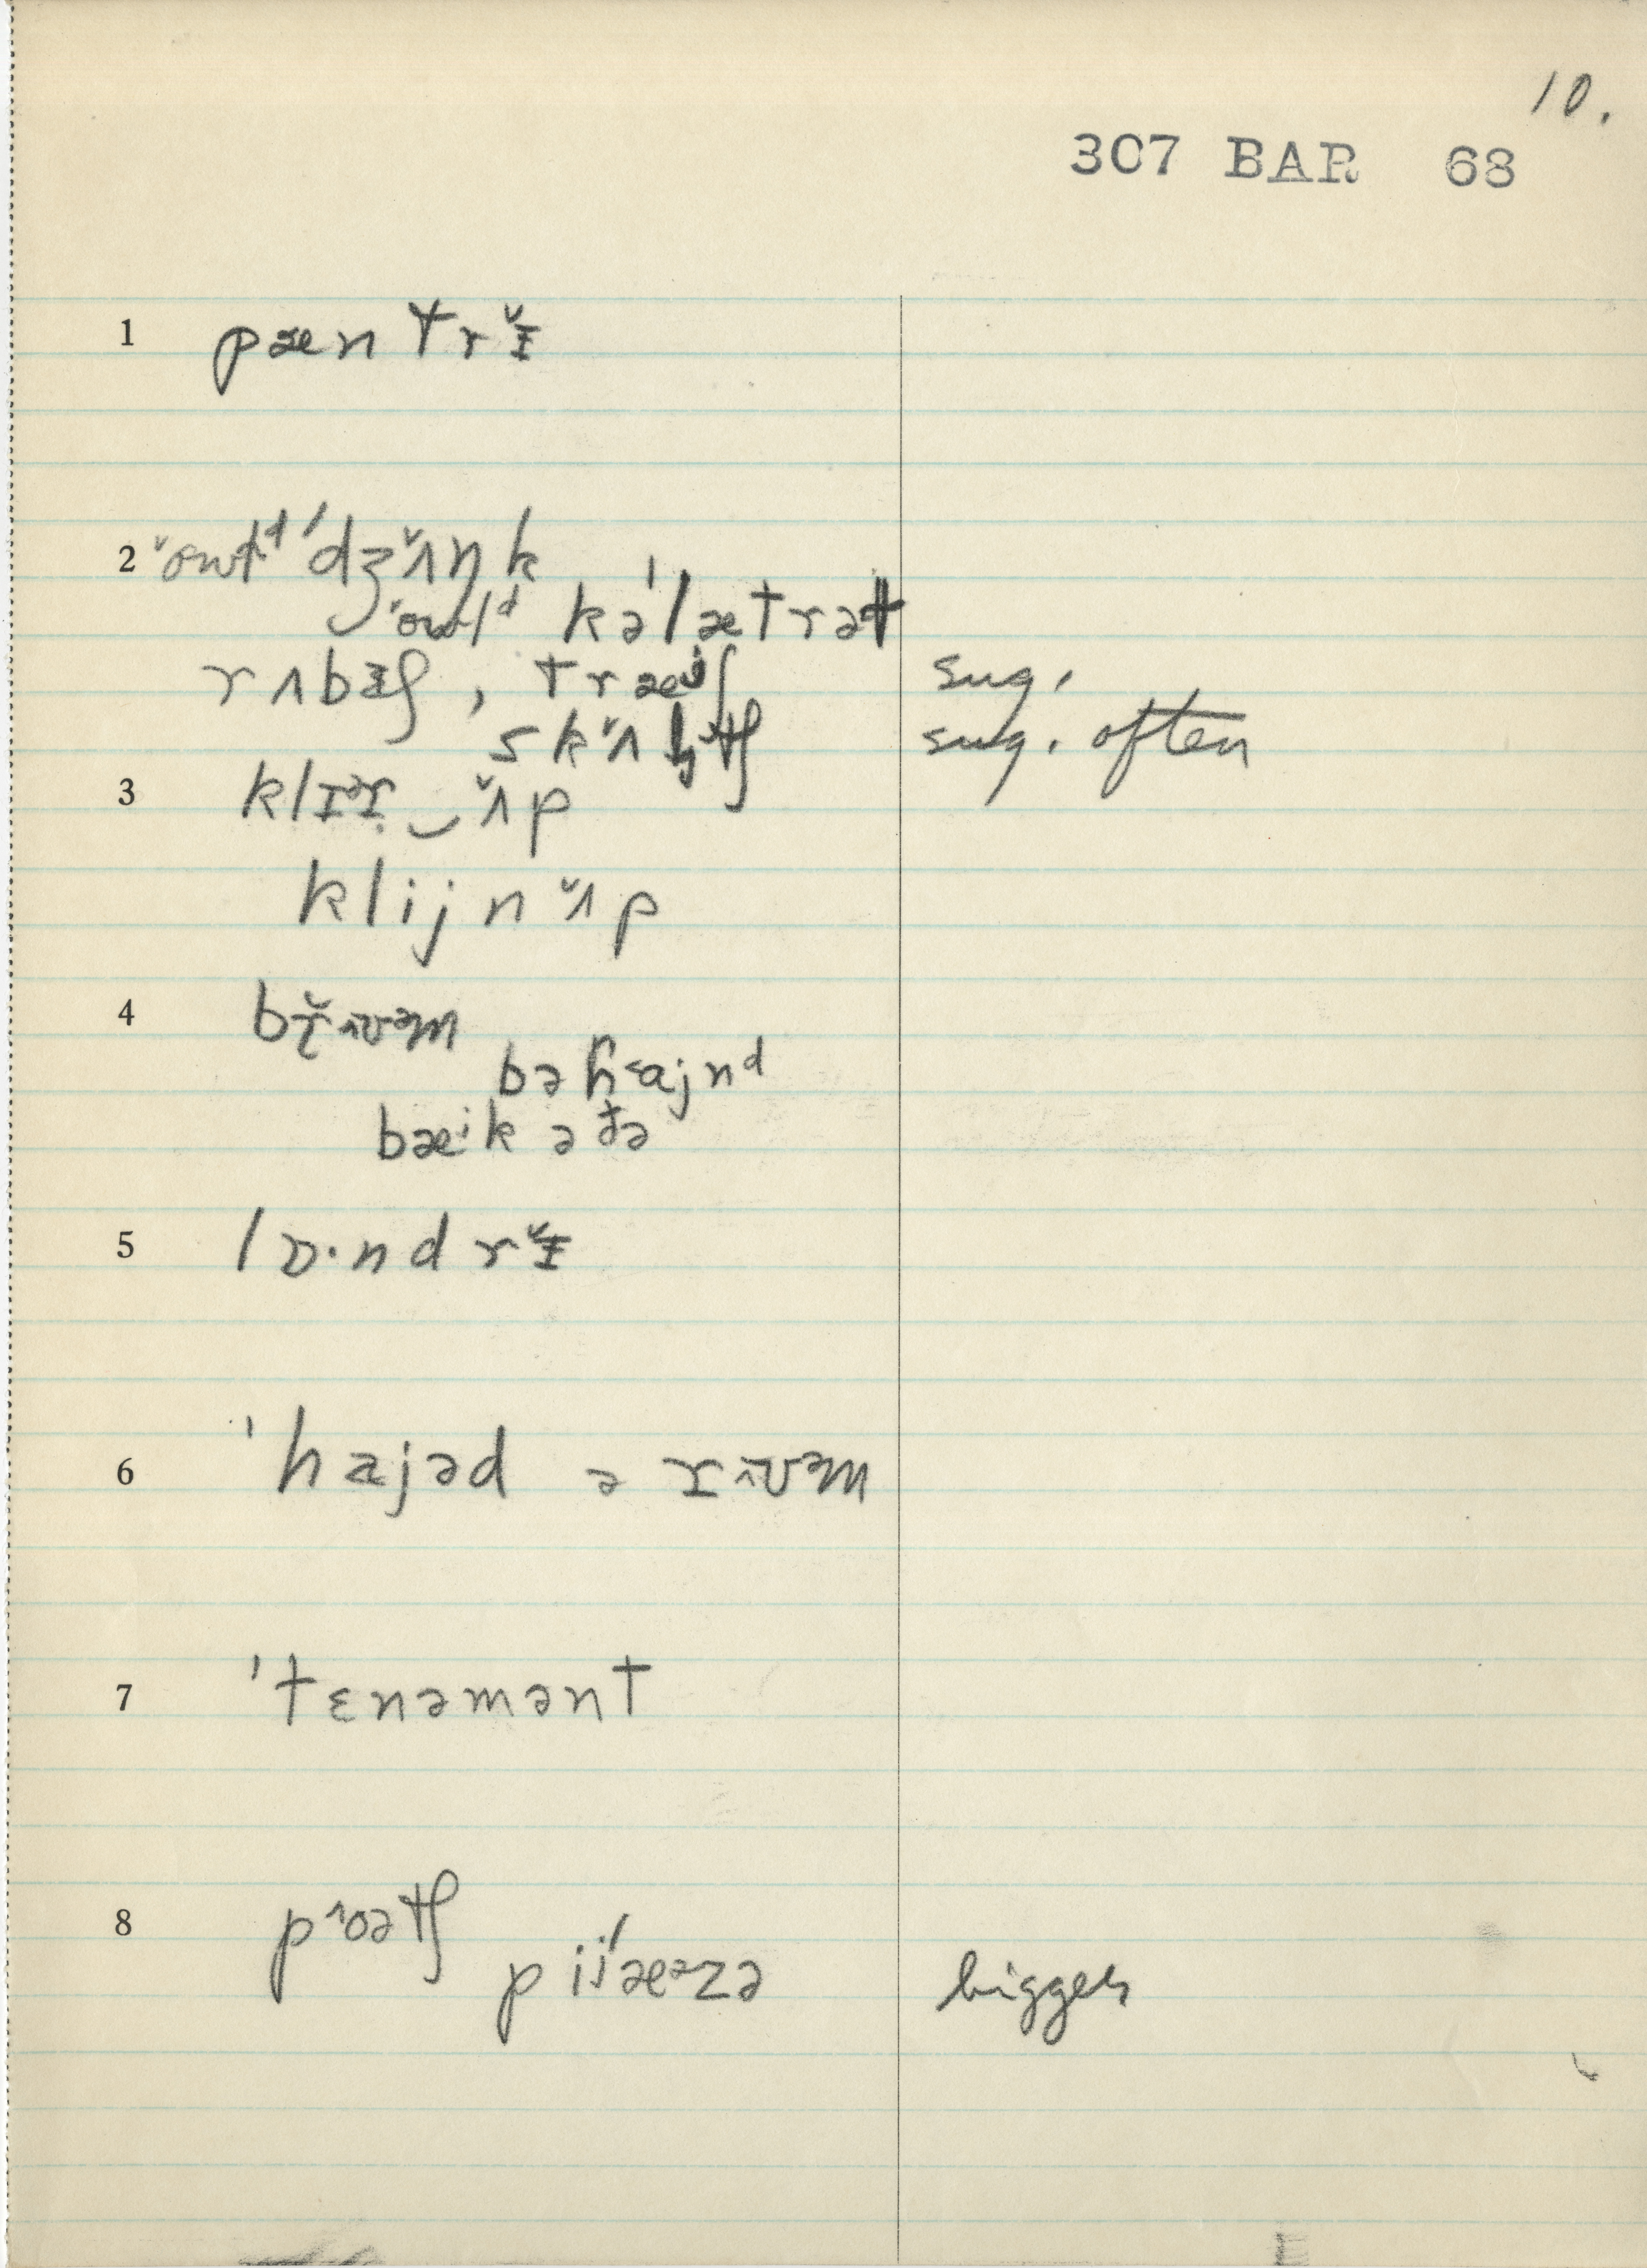 10.
307 BAR 68
1 pæntrᵻ̌
2 ˈowɫᵈ ˈdʒʌ̌ŋk
ˈowlᵈ kəˈlætrət
rʌbɪʃ, træʲʃ sug.
skʌ̌ltʃ sug. often
3 klɪəɹ‿ʌ̌p
klijn ʌ̌p
4 brʌ̌ʊᵊm
bəɦajnᵈ
bæⁱk ə də
5 lɒ·ndrᵻ̌
6 ˈhajəd ə rʌʊᵊm
7 ˈtɛnəmənt
8 pˆoətʃ
pijˈæᵊzə bigger